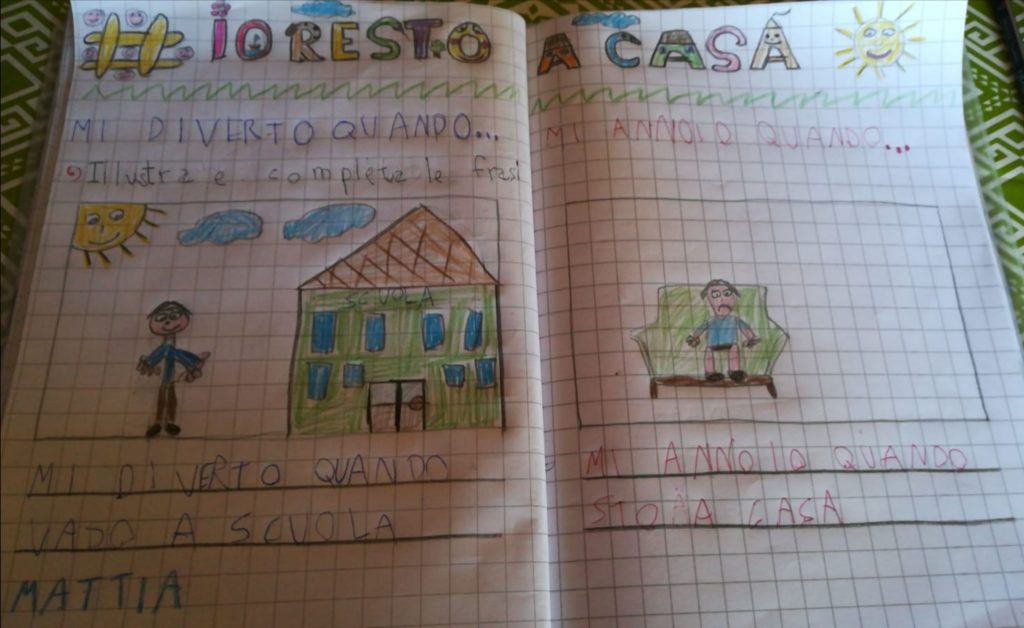 # IO RESTO A CASA
MI DIVERTO QUANDO...
Illustra e completa le frasi
SCUOLA
MI DIVERTO QUANDO
VADO A SCUOLA
MATTIA
MI ANNOIO QUANDO...
MI ANNOIO QUANDO
STO A CASA